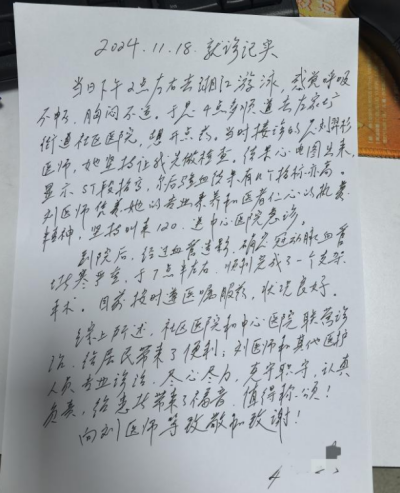 2024.11.18.就诊记实
当日下午2点左右去湘江游泳,感觉呼吸
不畅,胸闷不适。于是4点多顺道去左家垅
街道社区医院,想开点药。当时接诊的是刘
医师,她坚持让我先做检查。结果心电图出来,
显示ST段抬高,尔后验血结果有几个指标亦高。
刘医师凭着她的专业素养和医者仁心的执着
精神,坚持叫来120,送中心医院急诊。
到院后,经过血管造影,确定冠动脉血管
堵塞严重,于7点半左右,顺利完成了一个支架
手术。目前按时遵医嘱服药,状况良好。
综上所述,社区医院和中心医院联席诊
治,给居民带来了便利;刘医师和其他医护
人员专业诊治,尽心尽力,克守职守,认真
负责,给患者带来了福音,值得称颂!
向刘医师等致敬和致谢!